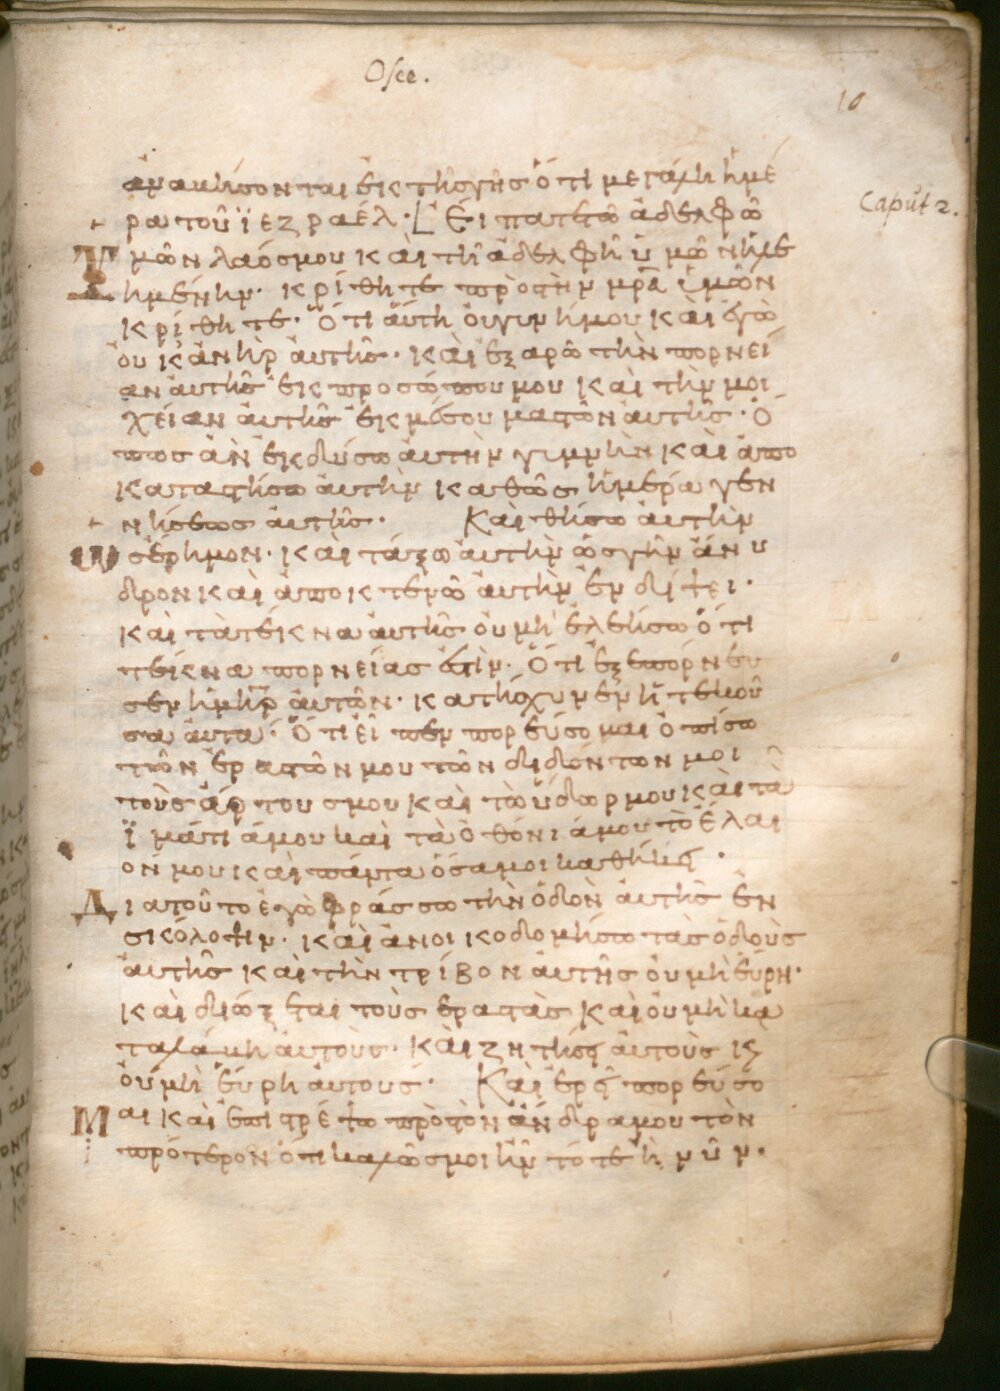 Osee.
10
ἀνακήσονται ἐκ τῆς γῆς ὅτι μεγάλη ἡ ἡμέ
ρα τοῦ ϊεζραέλ· [Εἴπατε τῶ ἀδελφῶ
Caput 2.
Ὑμῶν λαός μου καὶ τῆ ἀδελφῆ ὑμῶν ἠλε
ημένην· κρίθητε πρὸς τὴν μρα ὑμῶν
κρίθητε· Ὅτι ἄυτη ὀυ γυνή μου κἀι ἐγὼ
ὀυκ ἀνὴρ ἀυτῆς· κἀι ἐξαρῶ τὴν πορνεί
αν ἀυτῆς ἐκ προσώπου μου κἀι τὴν μοι
χείαν ἀυτῆς ἐκ μέσου μαστῶν ἀυτῆς· Ὅ
πως ἂν ἐκδύσω ἀυτὴν γυμνὴν κἀι ἀπο
καταστήσω ἀυτὴν καθὼς ἡμέρα γεν
νήσεως ἀυτῆς· Κἀι θήσω ἀυτὴν
ὡς ἔρημον· κἀι τάξω ἀυτὴν ὡς γῆν ἄνυ
δρον κἀι ἀποκτενῶ ἀυτὴν ἐν δίψει·
κἀι τὰ τέκνα ἀυτῆς ὀυ μὴ ἐλεήσω ὅτι
τέκνα πορνείας ἐστὶν· Ὅτι ἐξεπόρνευ
σεν ἡ μηρ ἀυτῶν· κατήσχυνεν ἡ τεκοῦ
σα ἀυτά· Ὅτι εἶπεν πορεύσομαι ὀπίσω
τῶν ἐραστῶν μου τῶν διδόντων μοι
τοὺς ἄρτους μου κἀι τὸ ὕδωρ μου κἀι τὰ
ϊμάτιά μου καὶ τὰ ὀθόνιά μου τὸ ἔλαι
όν μου κἀι πάντα ὅσα μοι καθήκει·
Διατοῦτο ἐγὼ φράσσω τὴν ὁδὸν ἀυτῆς ἐν
σκόλοψιν· κἀι ἀνοικοδομήσω τὰς ὁδοὺς
ἀυτῆς κἀι τὴν τρίβον ἀυτῆς ὀυ μὴ ἕυρη·
κἀι διώξεται τοὺς ἐραστὰς κἀι ὀυ μὴ κα
ταλάβη ἀυτοὺς· κἀι ζητήσει ἀυτοὺς κ
ὀυ μὴ ἕυρη ἀυτούς· Κἀι ἐρεῖ πορεύσο
Μαι κἀι ἐπιστρέψω πρὸς τὸν ἄνδρα μου τὸν
πρότερον ὅτι καλῶς μοι ἦν τότε ἢ νῦν·